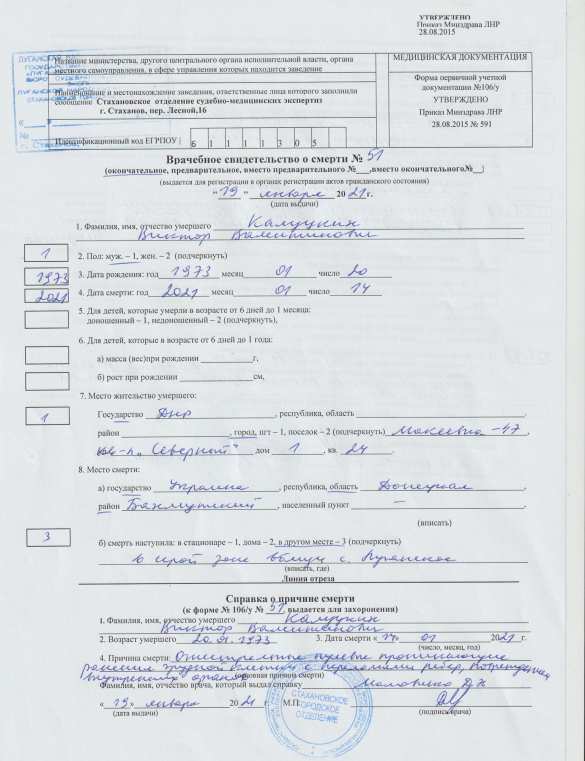 УТВЕРЖДЕНО
Приказ Минздрава ЛНР
28.08.2015
Название министерства, другого центрального органа исполнительной власти, органа
местного самоуправления, в сфере управления которых находится заведение
МЕДИЦИНСКАЯ ДОКУМЕНТАЦИЯ
Наименование и местонахождение заведения, ответственные лица которого заполнили
сообщение Стахановское отделение судебно-медицинских экспертиз
г. Стаханов, пер. Лесной,16
Форма первичной учетной
документации №106/у
УТВЕРЖДЕНО
Приказ Минздрава ЛНР
28.08.2015 № 591
Идентификационный код ЕГРПОУ | 6 1 1 1 1 3 0 5
Врачебное свидетельство о смерти № 51
(окончательное, предварительное, вместо предварительного №___,вместо окончательного№__)
(выдается для регистрации в органах регистрации актов гражданского состояния)
"19" января 2021г.
(дата выдачи)
1. Фамилия, имя, отчество умершего
Виктор Валентинович
1 2. Пол: муж. – 1, жен. – 2 (подчеркнуть)
1973 3. Дата рождения: год 1973 месяц 01 число 20
2021 4. Дата смерти: год 2021 месяц 01 число 14
5. Для детей, которые умерли в возрасте от 6 дней до 1 месяца:
доношенный – 1, недоношенный – 2 (подчеркнуть),
6. Для детей, которые в возрасте от 6 дней до 1 года:
а) масса (вес)при рождении ____________г,
б) рост при рождении ____________см,
7. Место жительство умершего:
1 Государство ДНР, республика, область
район, город, пгт – 1, поселок – 2 (подчеркнуть) Макеевка -47,
"Северный" дом 1, кв. 24,
8. Место смерти:
а) государство Украина, республика, область Донецкая,
район Бахмутский, населенный пункт —
(вписать)
3 б) смерть наступила: в стационаре – 1, дома – 2, в другом месте – 3 (подчеркнуть)
в серой зоне вблизи с. Луганское
(вписать, где)
Линия отреза
Справка о причине смерти
(к форме № 106/у № 51, выдается для захоронения)
1. Фамилия, имя, отчество умершего
Виктор Валентинович
2. Возраст умершего 20.01.1973 3. Дата смерти « 14» 01 2021 г.
(число, месяц, год)
4. Причина смерти: Огнестрельные пулевые проникающие
ранения грудной клетки с переломами ребер, повреждением
внутренних органов
(основная причина смерти)
Фамилия, имя, отчество врача, который выдал справку
«19» января 2021 г. М.П.
(дата выдачи) (подпись врача)
СТАХАНОВСКОЕ
ГОРОДСКОЕ
ОТДЕЛЕНИЕ